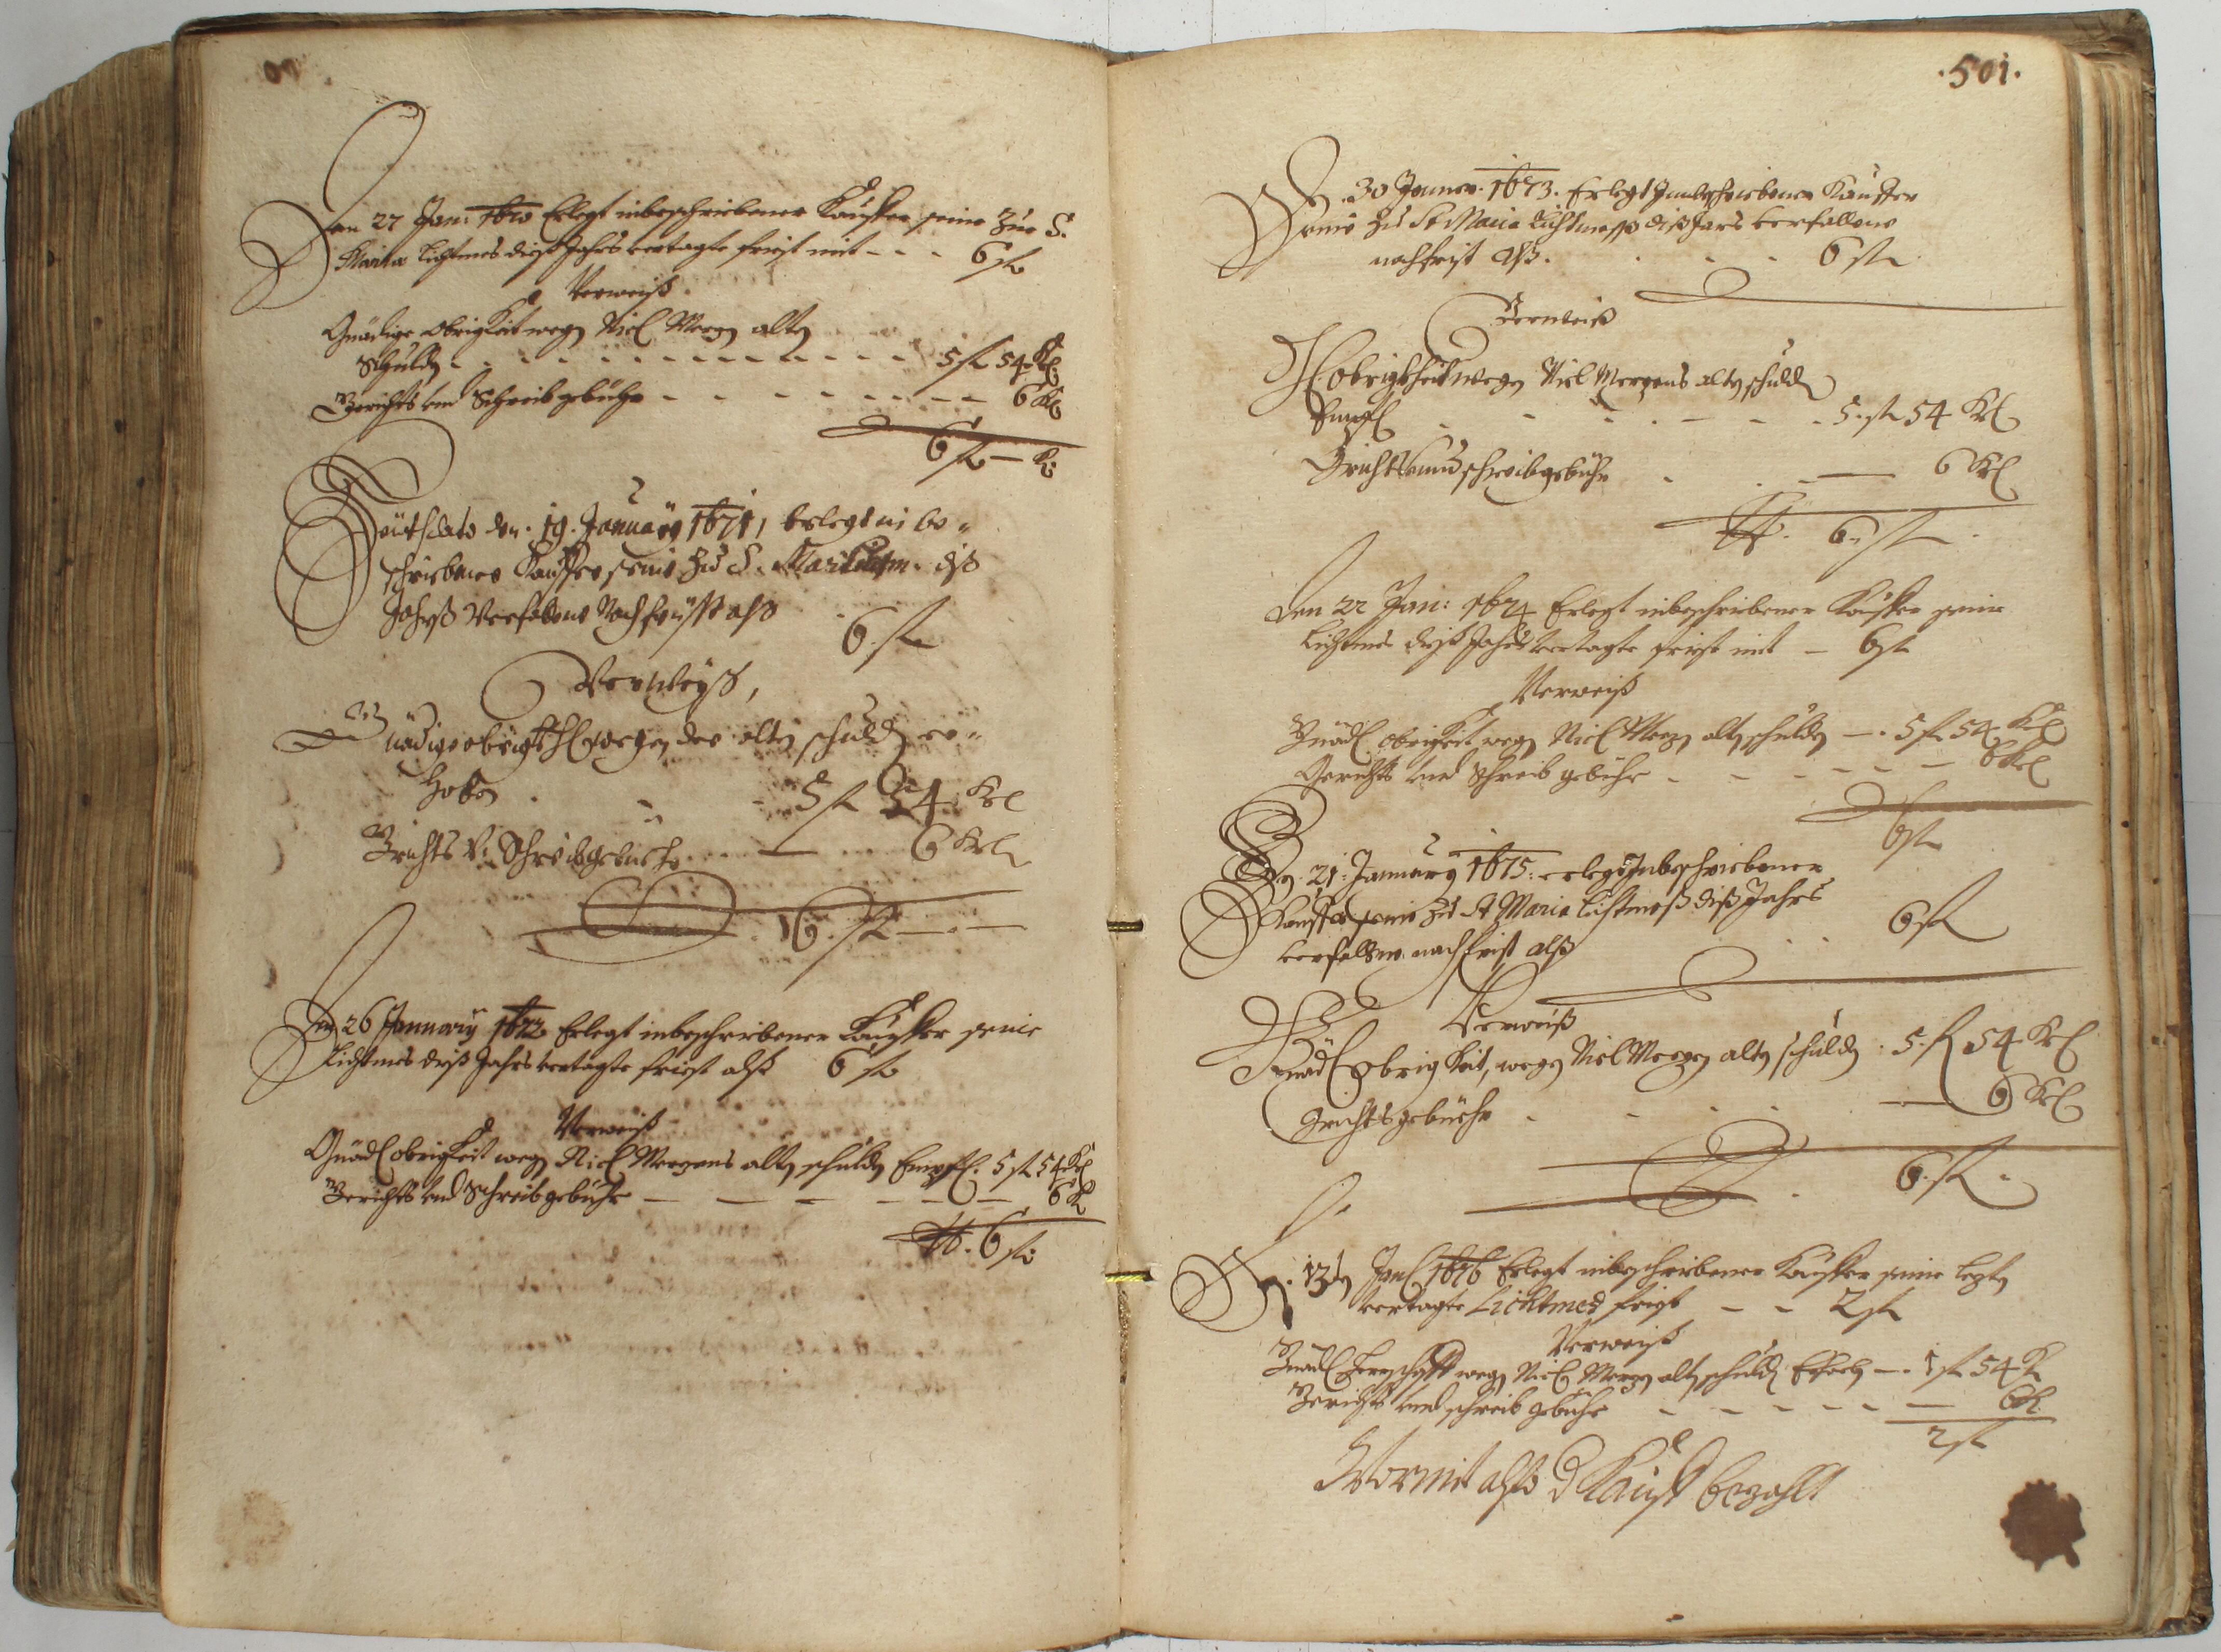 Den 27 Jan: 1670 Erlegt inbeschriebener Kauffer seine Zue S.
Maria Lichtmes diess Jahrs vertagte frist mit - - - 6 fl
Verweiß
Gnädige obrigkeit wegen Niel Mergen alten
Schulden - - - - 5 fl 54 Kr
Gerichts und Schreibgebühr - - - - 6 Kr
6 fl — Kr
dato den 19. January 1671, erlegt in be-
schriebener Kauffer seine Zu S. Maria Lichtm. diß
Jahrß Verfallene Nachfrist alß
6. fl
Verweyß,
Gnädige obrigkhl wegen der alten schulden er-
hoben . - - 5 fl 54 Kr
Grichts V. Schreibgebuehr ... — ... 6 Kr
6. fl — . —
Den 26 January 1672 Erlegt inbeschribener Kauffer seine
Lichtmes diß Jahrs vertagte frist alß 6 fl
Verweiß
Gnädl obrigkeit wegen Niel Mergens alten schulden Empfl. 5 fl 54 Kr
Gerichts und Schreibgebühr — — — — 6 Kr
6 fl:
.501.
Den 30 Jenner. 1673. Erlegt Innbeschriebener Kauffer
seine Zu St Maria Lichtmesß diß Jars verfallene
nachfrist Alß. . . . 6 fl
Verweiß
Gl. obrigkheit wegen Niel Mergens alten schulden
Empfl . - - - - 5. fl 54 Kr
Grichts unnd schreibgebühr - . — 6 Kr
6. fl
Den 22 Jan: 1674 Erlegt inbeschriebener Kauffer seine
Lichtmes diß Jahrs vertagte frist mit — 6 fl
Verweiß
Gnädl obrigkeit wegen Niel Mergen alten schulden —. 5 fl 54 Kr
Gerichts und Schreib gebühr - - - - - 6 Kr
6 fl
Den. 21. January 1675. erlegt Inbeschriebener
Kauffer seine Zu St Maria Lichtmeß diß Jahrs
verfallene nachfrist alß . . 6 fl
Verweiß
Gnädl Obrigkeit, wegen Niel Mergen alten schulden . 5. fl 54 Kr
Grichtsgebüehr - - . . — 6 Kr
6. fl.
Den. 13ten Janl 1676 Erlegt inbeschriebener Kauffer seine lezte
vertagte Lichtmes frist — — 2 fl
Verweiß
Gnädl Herrschafft wegen Niel Mergen alten schulden —. 1 fl 54 Kr
Gerichts und schreib gebühr - - - - - — 6 Kr
2 fl
Wormit alßo d Kauff bezahlt